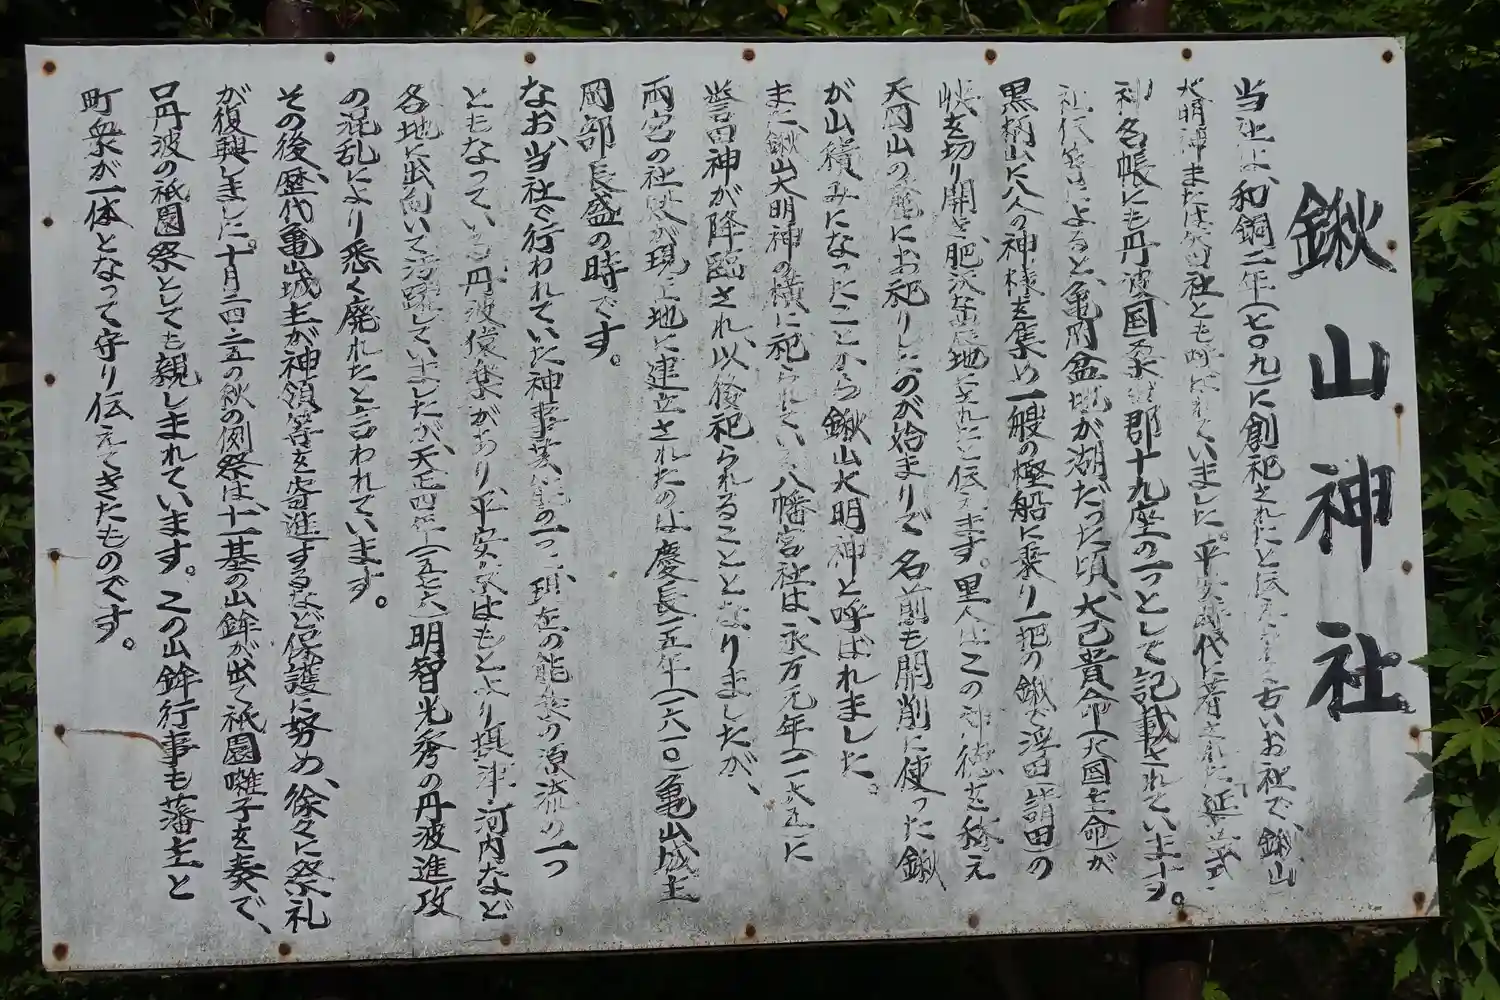 鍬山神社
当社は、和銅二年(七〇九)に創祀されたと伝えられる古いお社で、鍬山
大明神または矢田社とも呼ばれていました。平安時代に著された延喜式・
神名帳にも丹波国桑田郡十九座の一つとして記載されています。
社伝等によると、亀岡盆地が湖だった頃、大己貴命(大国主命)が
黒柄山に八人の神様を集め一艘の樫船に乗り一把の鍬で浮田(請田)の
峡を切り開き、肥沃な農地にされたと伝えます。里人はこの神徳を称え
天岡山の麓にお祀りしたのが始まりで、名前も開削に使った鍬
が山積みになったことから鍬山大明神と呼ばれました。
また、鍬山大明神の横に祀られている八幡宮社は、永万元年(一一六五)に
誉田神が降臨され、以後祀られることとなりましたが、
両宮の社殿が現在地に建立されたのは慶長一五年(一六一〇)亀山城主
岡部長盛の時です。
なお、当社で行われていた神事芸能の一つに現在の能楽の源流の一つ
ともなっている丹波猿楽があり、平安以来はもとより摂津・河内など
各地に出向いて活躍していましたが、天正四年(一五七六)明智光秀の丹波進攻
の混乱により悉く廃れたと言われています。
その後、歴代亀山城主が神領等を寄進するなど保護に努め、徐々に祭礼
が復興しました。十月二四・二五の秋の例祭は、十一基の山鉾が出て祇園囃子を奏で、
口丹波の祇園祭としても親しまれています。この山鉾行事も藩主と
町衆が一体となって守り伝えてきたものです。